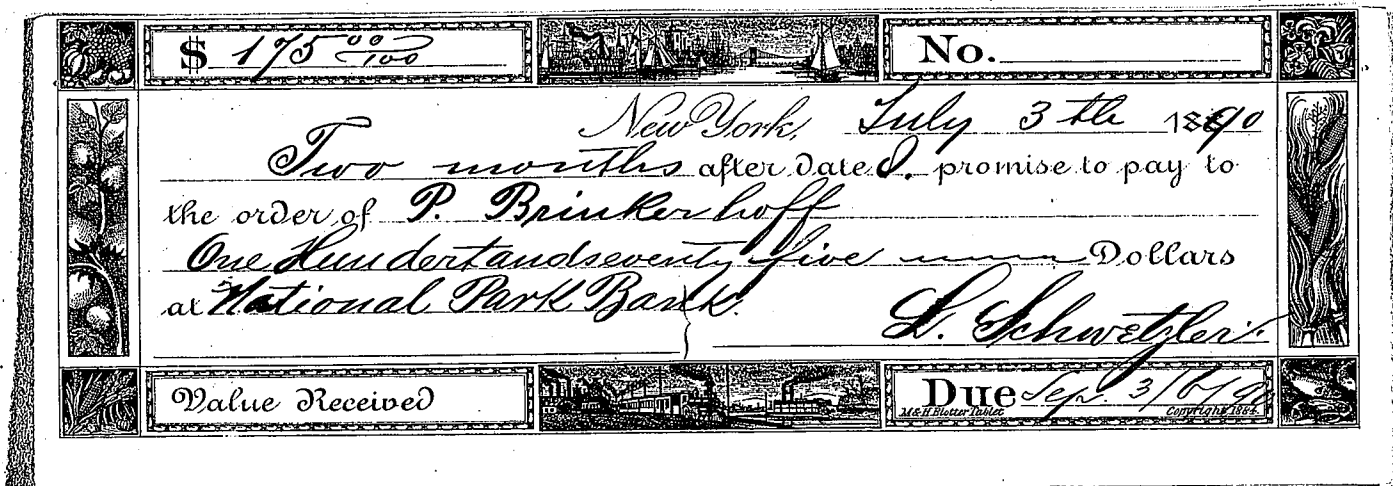 $ 175 00/100
No.
New York, July 3 the 1890
Two months after date I. promise to pay to
the order of P. Brinkerhoff
One Hundert and seventy five Dollars
at National Park Bank.
L. Schwetzler
Value Received
Due Sep. 3/6/90
M & H Blotter Tablet
Copyright 1884.